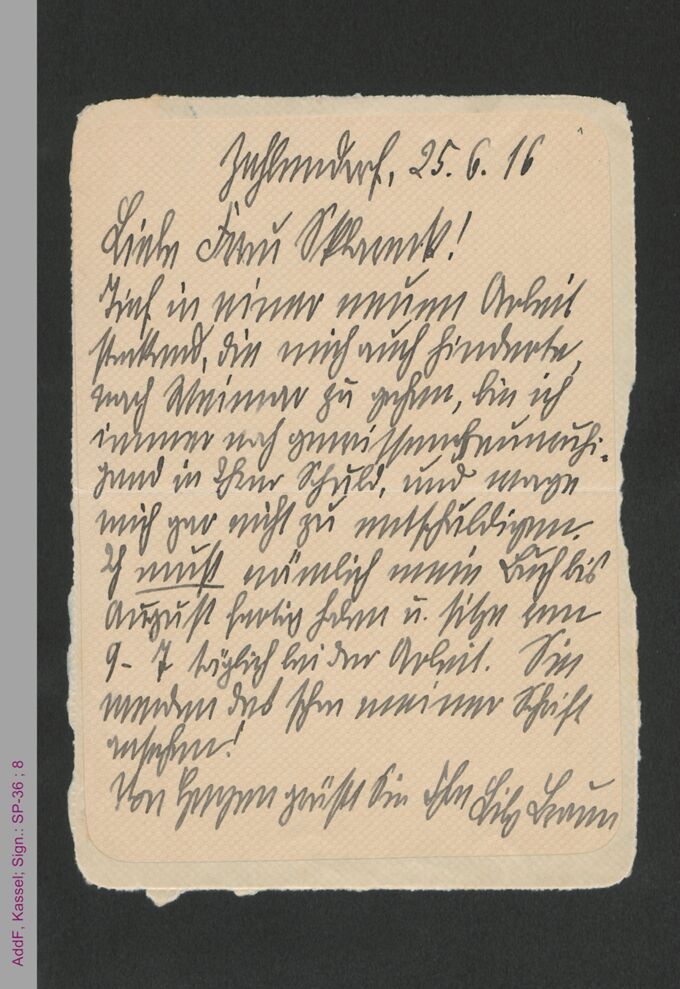 Zehlendorf, 25. 6. 16
Liebe Frau
Tief in einer neuen Arbeit
steckend, die mich auch hinderte,
nach Weimar zu gehen, bin ich
immer noch gewissensbeunruhi-
gend in Ihrer Schuld, und wage
mich gar nicht zu entschuldigen.
Ich muß nämlich mein Buch bis
August fertig haben u. sitze von
9 - 7 täglich bei der Arbeit. Sie
werden das schon meiner Schrift
ansehen!
Von Herzen grüßt Sie Ihre Lily Braun
AddF, Kassel; Sign.: SP-36 ; 8